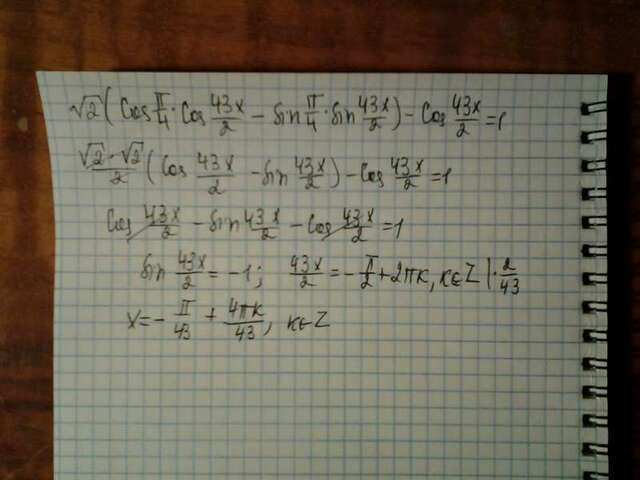 √2(cos π/4 · cos 43x/2 − sin π/4 · sin 43x/2) − cos 43x/2 = 1
√2·√2/2 (cos 43x/2 − sin 43x/2) − cos 43x/2 = 1
cos 43x/2 − sin 43x/2 − cos 43x/2 = 1
sin 43x/2 = −1; 43x/2 = −π/2 + 2πк, к∈Z |· 2/43
x = − π/43 + 4πк/43, к∈Z